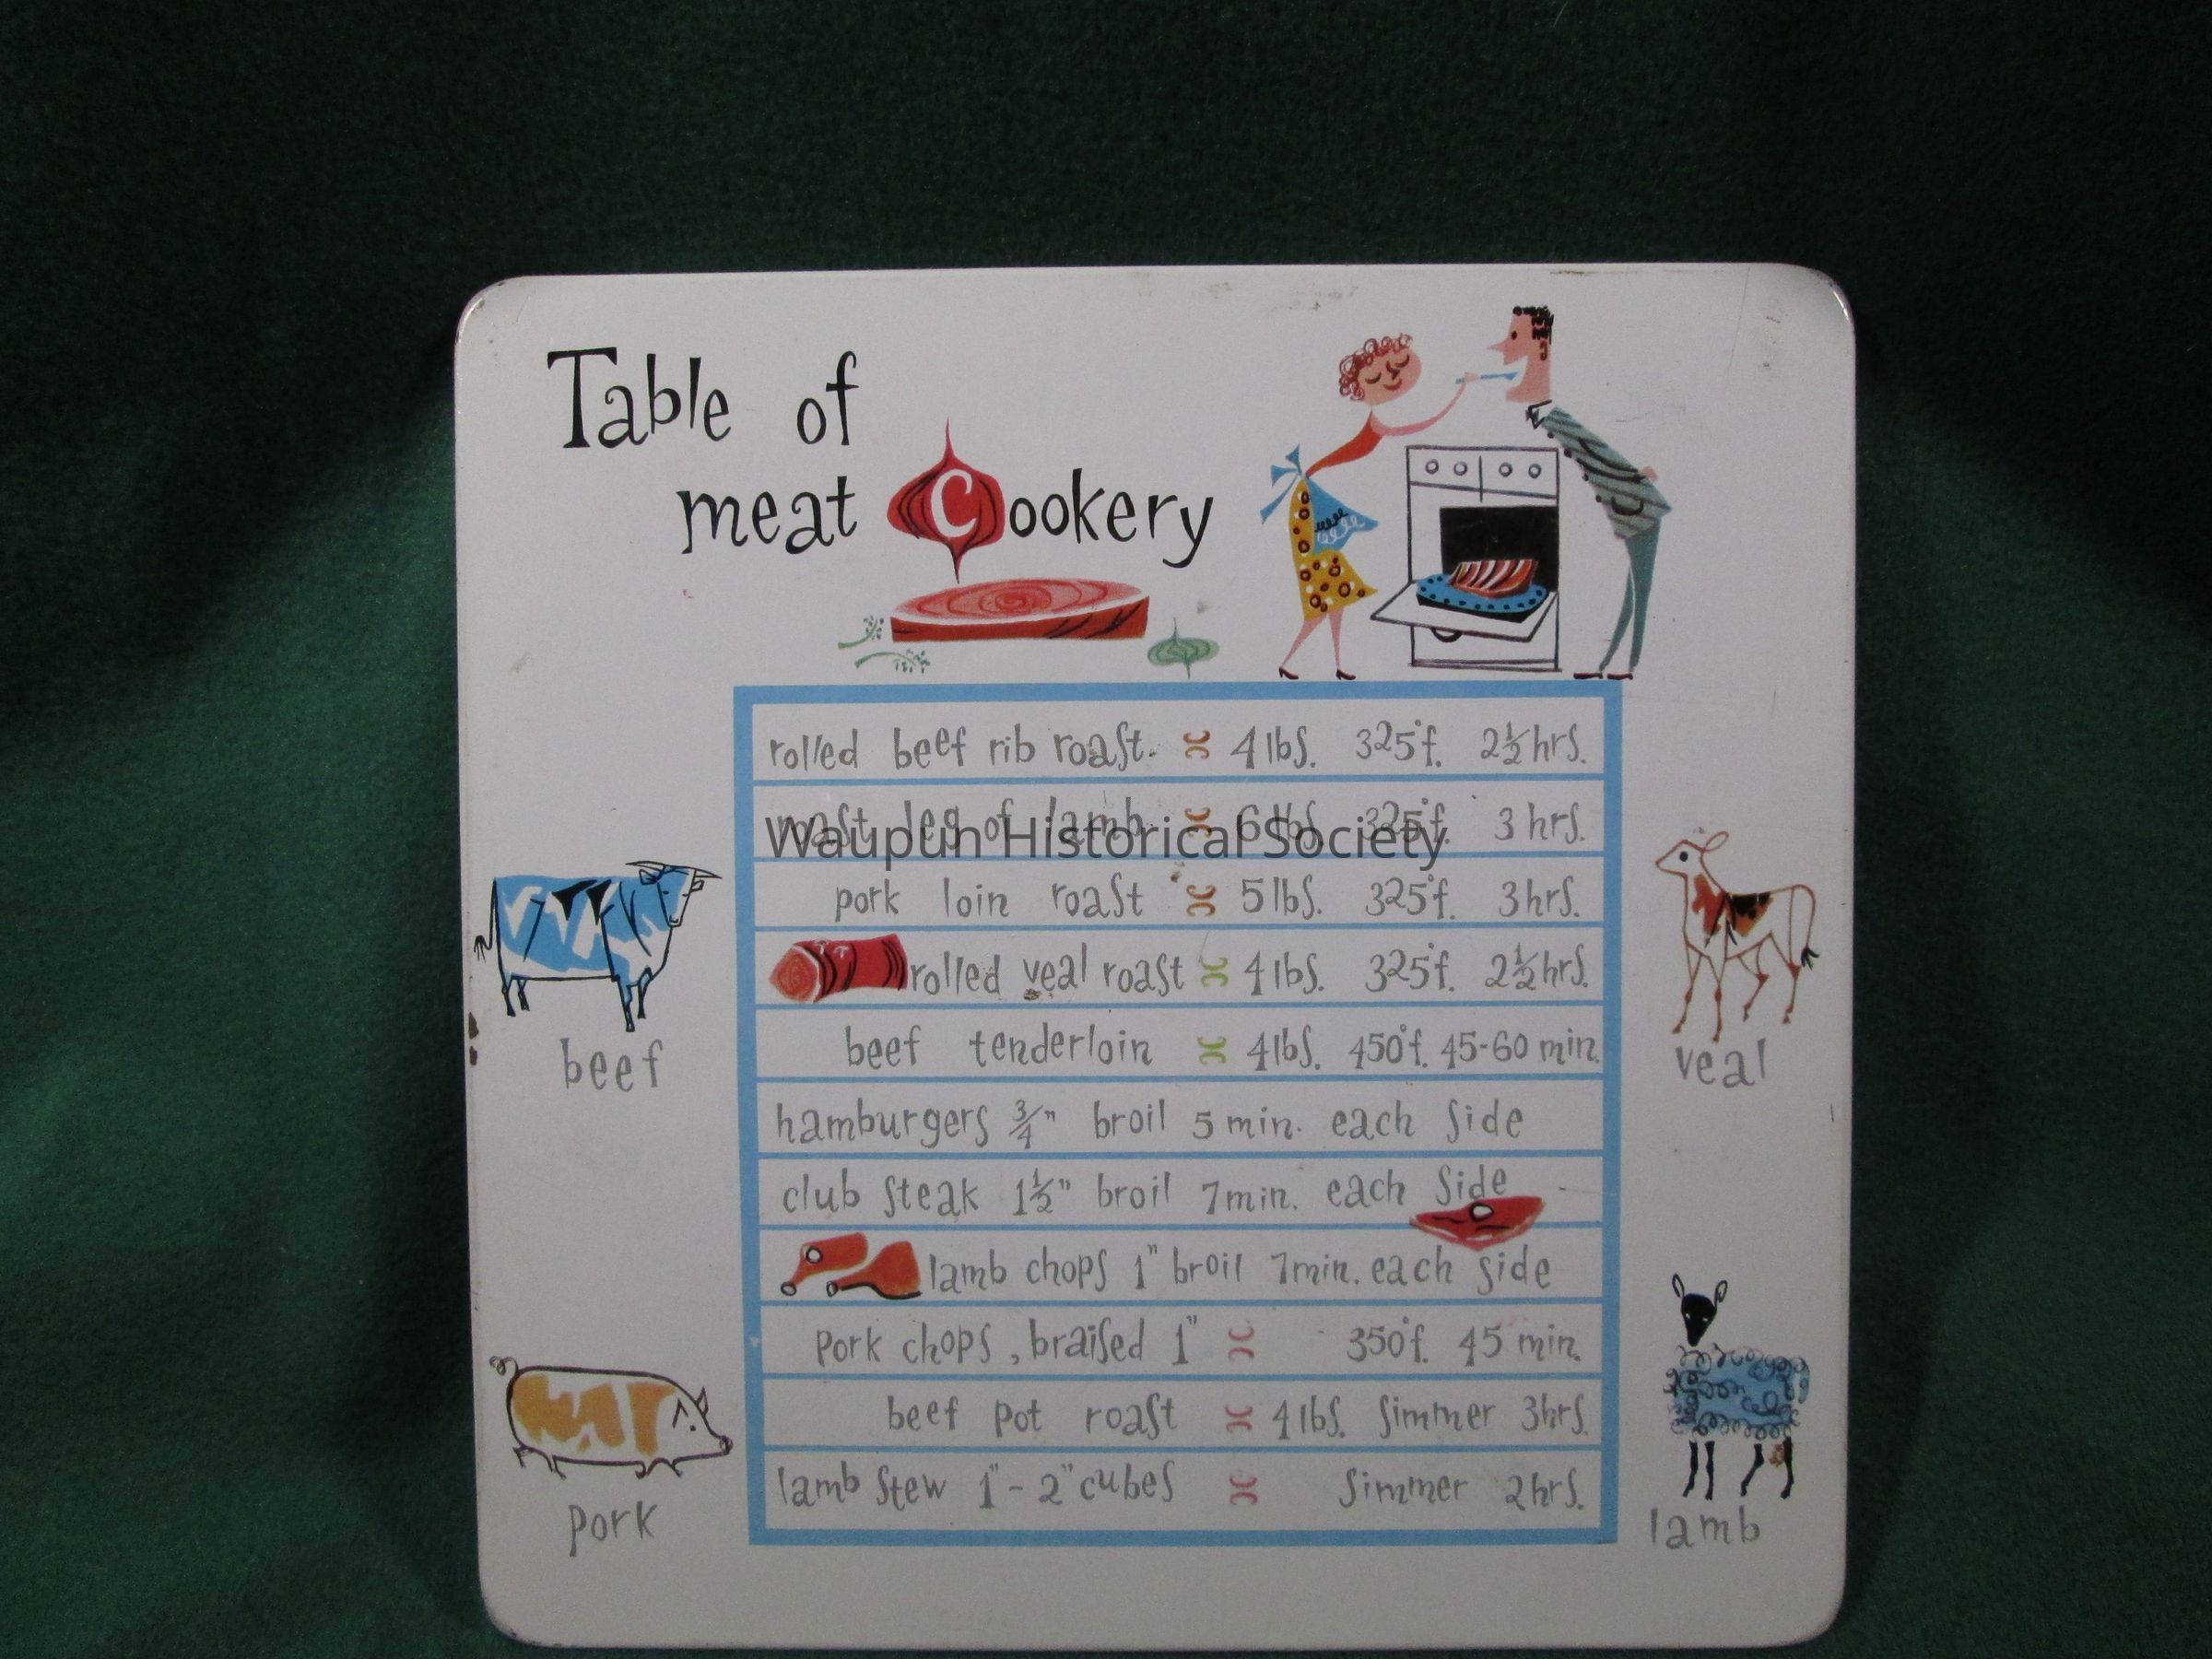 Table of
meat Cookery
rolled beef rib roast. 4 lbs. 325°f. 2½ hrs.
roast leg of lamb 6 lbs. 325°f. 3 hrs.
Waupun Historical Society
pork loin roast 5 lbs. 325°f. 3 hrs.
rolled veal roast 4 lbs. 325°f. 2½ hrs.
beef tenderloin 4 lbs. 450°f. 45-60 min.
hamburgers ¾" broil 5 min. each side
club steak 1½" broil 7 min. each side
lamb chops 1" broil 7 min. each side
pork chops, braised 1" 350°f. 45 min.
beef pot roast 4 lbs. simmer 3 hrs.
lamb stew 1" - 2" cubes simmer 2 hrs.
beef
veal
pork
lamb